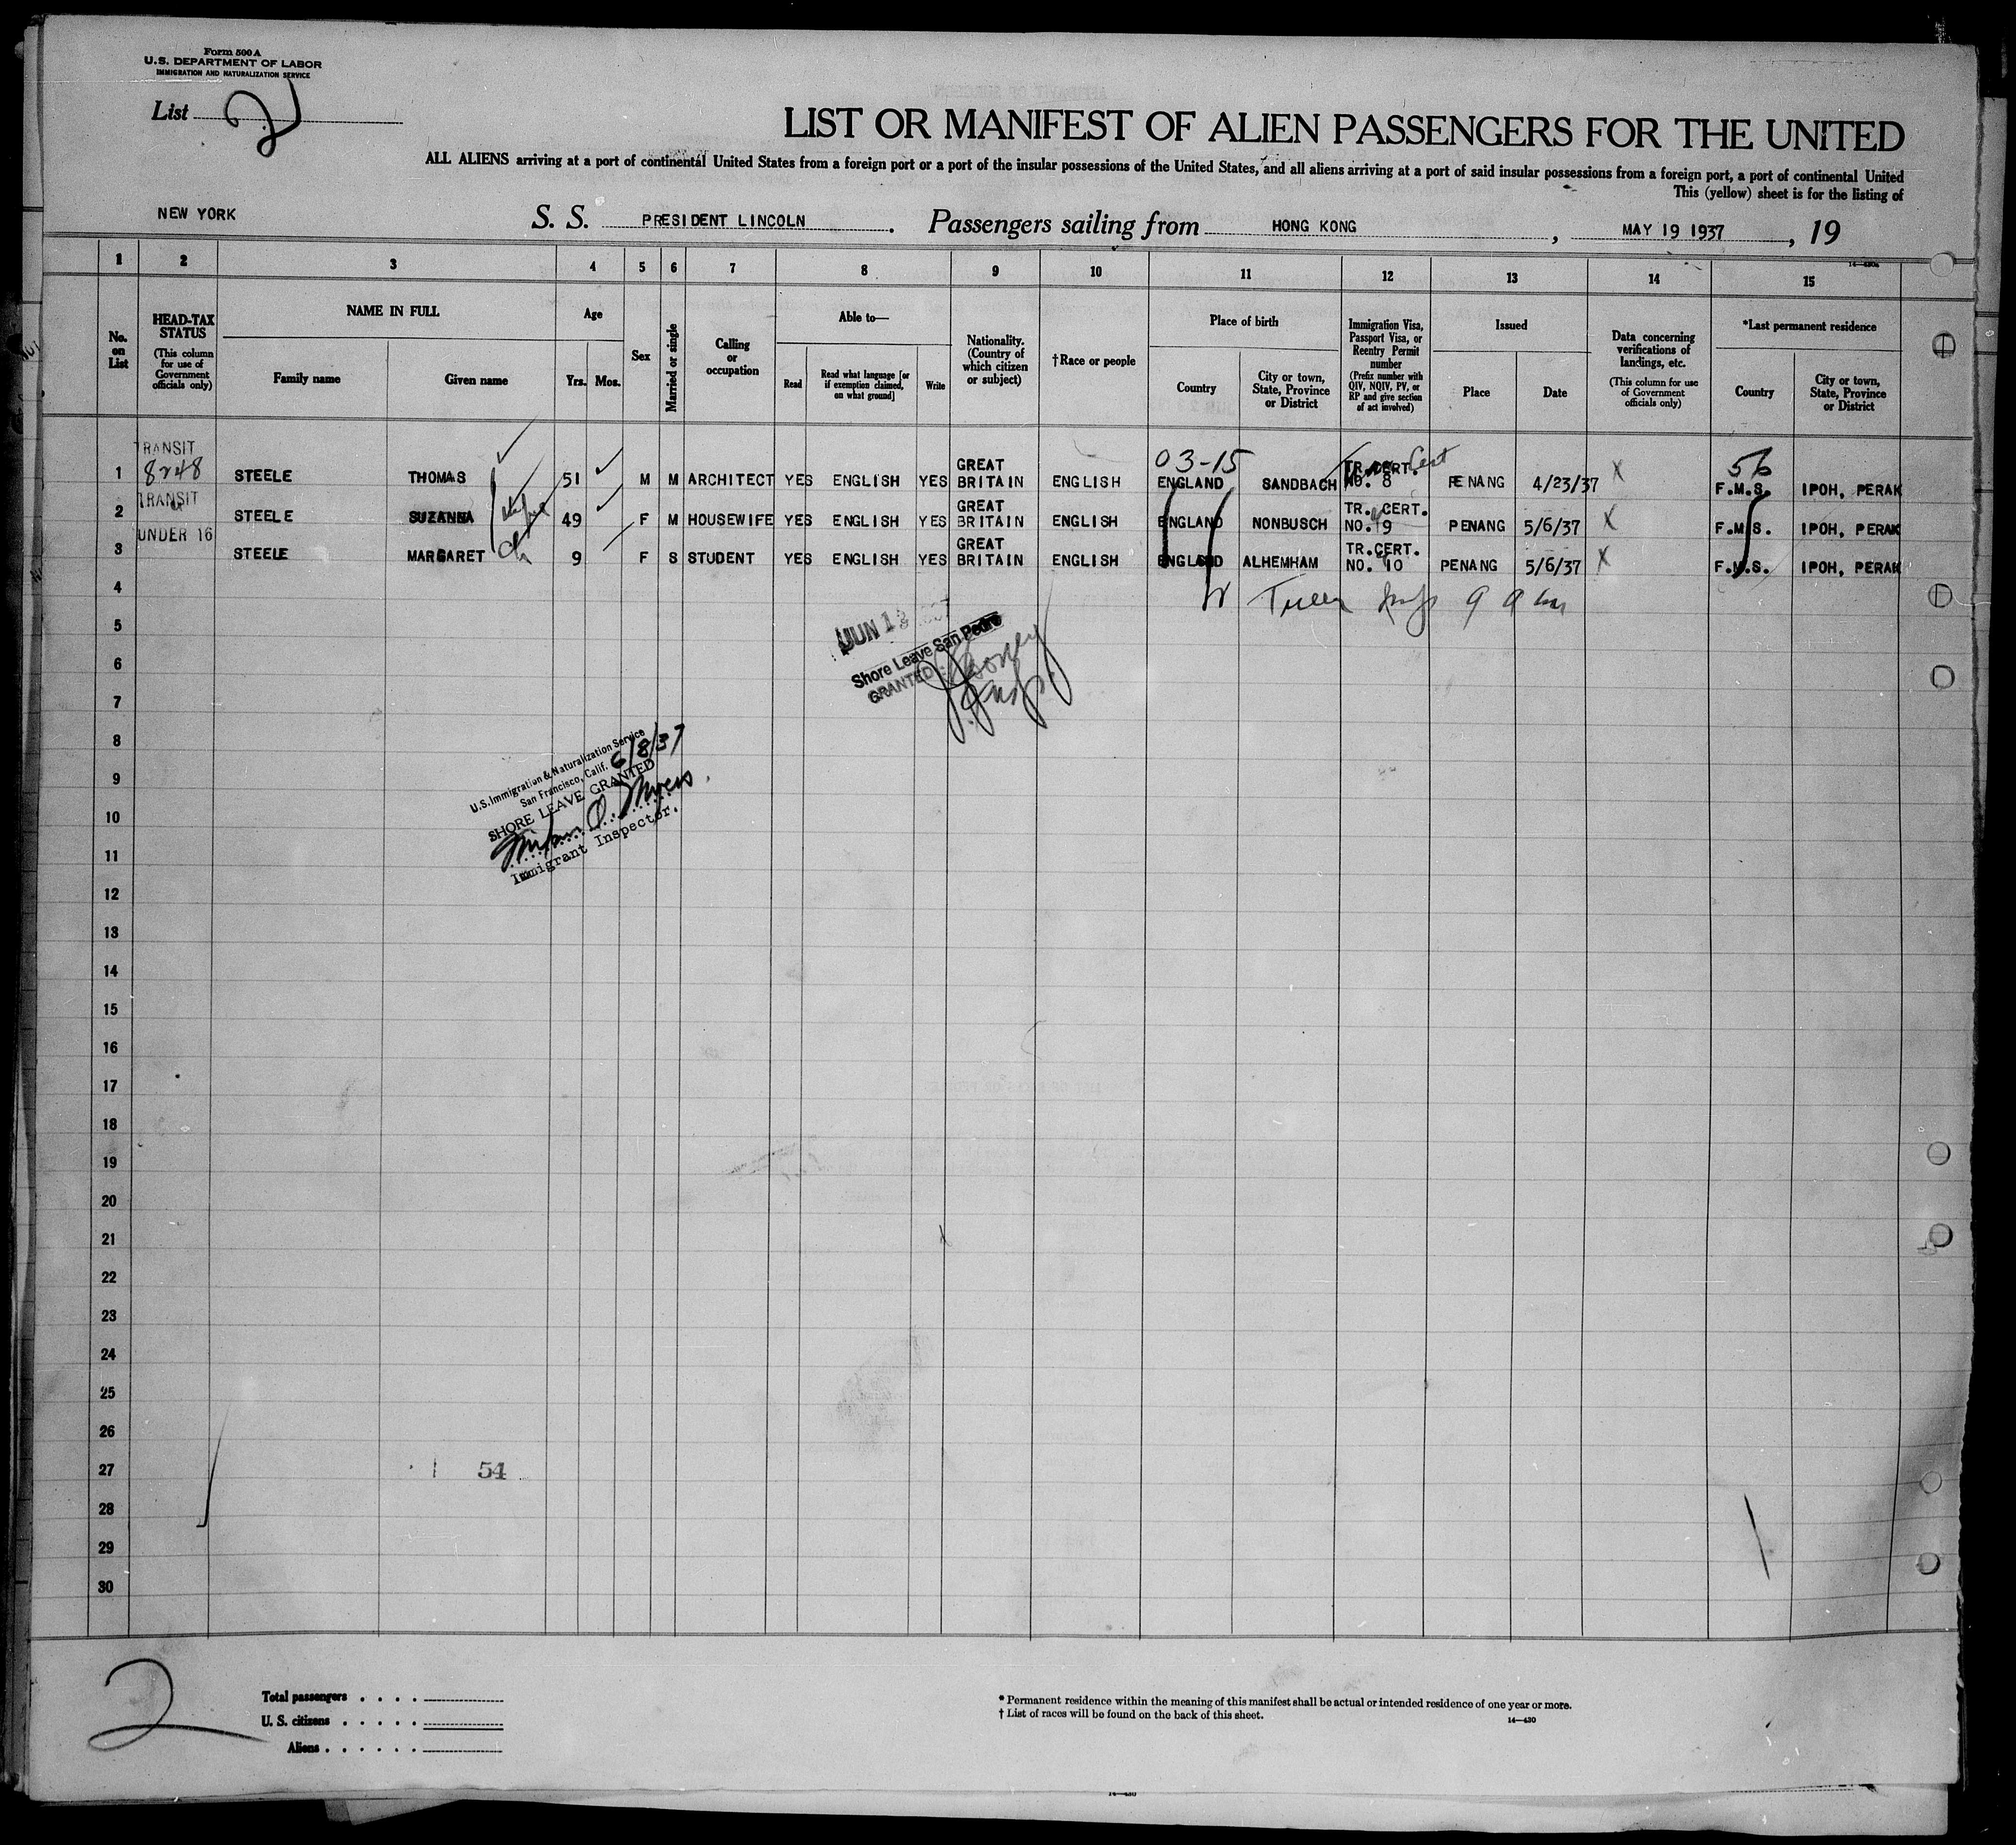 Form 500 A
U.S. DEPARTMENT OF LABOR
IMMIGRATION AND NATURALIZATION SERVICE
List 2
LIST OR MANIFEST OF ALIEN PASSENGERS FOR THE UNITED
ALL ALIENS arriving at a port of continental United States from a foreign port or a port of the insular possessions of the United States, and all aliens arriving at a port of said insular possessions from a foreign port, a port of continental United
This (yellow) sheet is for the listing of
NEW YORK S. S. PRESIDENT LINCOLN . Passengers sailing from HONG KONG , MAY 19 1937 , 19
1 2 3 4 5 6 7 8 9 10 11 12 13 14 15
No. on List
HEAD-TAX STATUS (This column for use of Government officials only)
NAME IN FULL
Family name Given name
Age
Yrs. Mos.
Sex
Married or single
Calling or occupation
Able to—
Read Read what language [or if exemption claimed, on what ground] Write
Nationality. (Country of which citizen or subject)
†Race or people
Place of birth
Country City or town, State, Province or District
Immigration Visa, Passport Visa, or Reentry Permit number (Prefix number with QIV, NQIV, PV, or RP and give section of act involved)
Issued
Place Date
Data concerning verifications of landings, etc. (This column for use of Government officials only)
*Last permanent residence
Country City or town, State, Province or District
TRANSIT 03-15 56
1 8248 STEELE THOMAS 51 M M ARCHITECT YES ENGLISH YES GREAT BRITAIN ENGLISH ENGLAND SANDBACH TR. CERT. NO. 8 PENANG 4/23/37 X F.M.S. IPOH, PERAK
TRANSIT
2 STEELE SUZANNA 49 F M HOUSEWIFE YES ENGLISH YES GREAT BRITAIN ENGLISH ENGLAND NONBUSCH TR. CERT. NO. 9 PENANG 5/6/37 X F.M.S. IPOH, PERAK
UNDER 16
3 STEELE MARGARET 9 F S STUDENT YES ENGLISH YES GREAT BRITAIN ENGLISH ENGLAND ALHEMHAM TR.CERT. NO. 10 PENANG 5/6/37 X F.M.S. IPOH, PERAK
4
5
JUN 1
6
Shore Leave San Pedro
GRANTED
7
8
U.S. Immigration & Naturalization Service
San Francisco, Calif. 6/8/37
9
SHORE LEAVE GRANTED
10
Immigrant Inspector.
11
12
13
14
15
16
17
18
19
20
21
22
23
24
25
26
27 54
28
29
30
2
Total passengers . . . .
U. S. citizens . . . . .
Aliens . . . . . .
* Permanent residence within the meaning of this manifest shall be actual or intended residence of one year or more.
† List of races will be found on the back of this sheet.
14—430